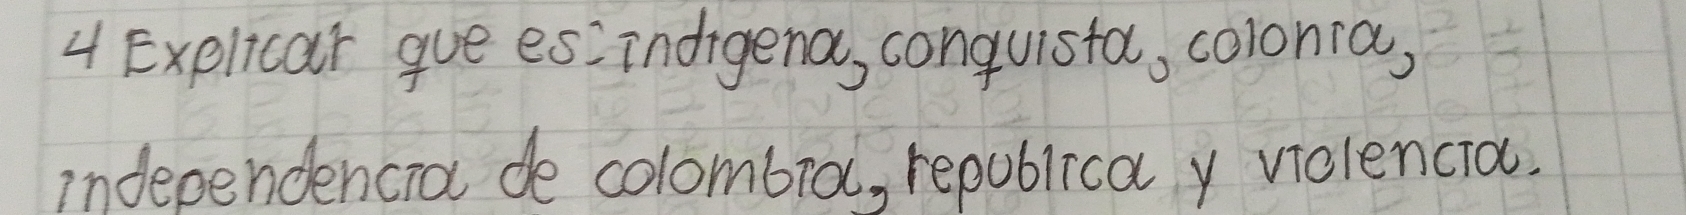 4 Explicar que es: indigena, conquista, colonia,
independencia de colombia, republica y violencia.